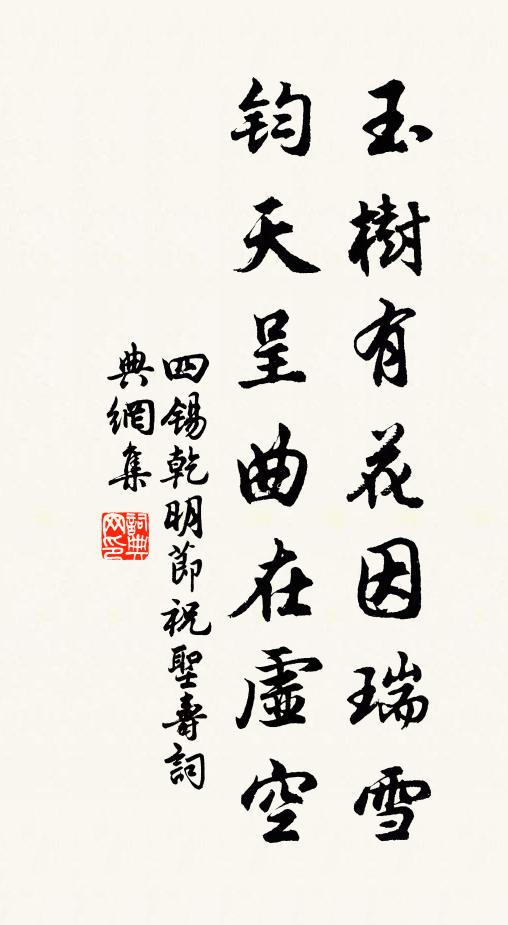 玉樹有花因瑞雪
鈞天呈曲在虛空
四錫乾明節祝聖壽詞
典網集
詞典
网印